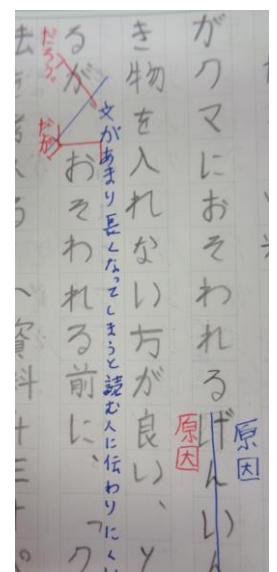 原因
がクマにおそわれるげんいん
原因
き物を入れない方が良い、
文があまり長くなってしまうと読む人に伝わりにくい
るが、おそわれる前に、「ク
だろう。
だが
資料十三